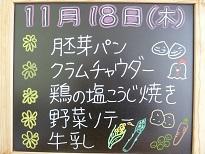 11月18日(木)
胚芽パン
クラムチャウダー
鶏の塩こうじ焼き
野菜ソテー
牛乳